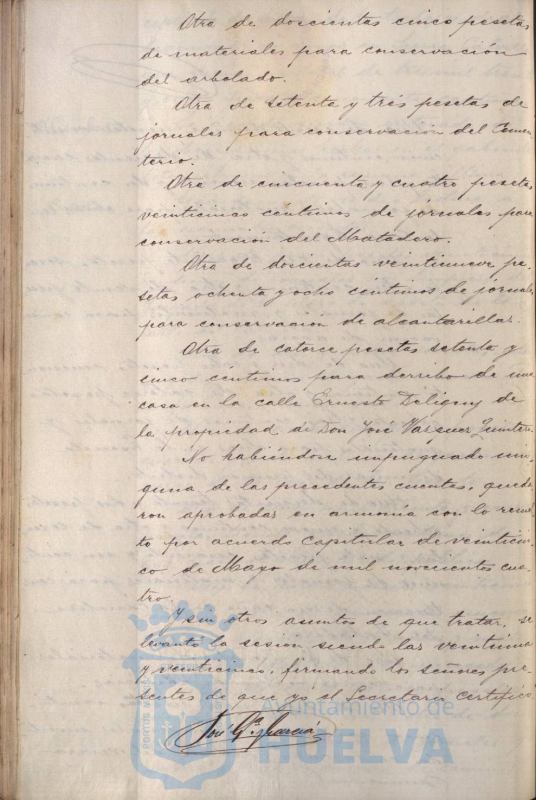 Otra de doscientas cinco pesetas
de materiales para conservación
del arbolado.
Otra de setenta y tres pesetas de
jornales para conservacion del Cemen-
terio.
Otra de cincuenta y cuatro pesetas
veinticinco centimos de jornales para
conservación del Matadero.
Otra de doscientas veintinueve pe-
setas ochenta y ocho céntimos de jornales
para conservacion de alcantarillas.
Otra de catorce pesetas setenta y
cinco céntimos para derribo de una
casa en la calle Ernesto Deligny de
la propiedad de Don José Vázquez
No habiéndose impugnado nin-
guna de las precedentes cuentas, queda-
ron aprobadas en armonía con lo resuel-
to por acuerdo capitular de veinticin-
co de Mayo de mil novecientos cua-
tro.
Y sin otros asuntos de que tratar, se
levantó la sesión siendo las veintiuna
y veinticinco, firmando los señores pre-
sentes de que yó el Secretario certifico
José Gª García
Ayuntamiento de
HUELVA